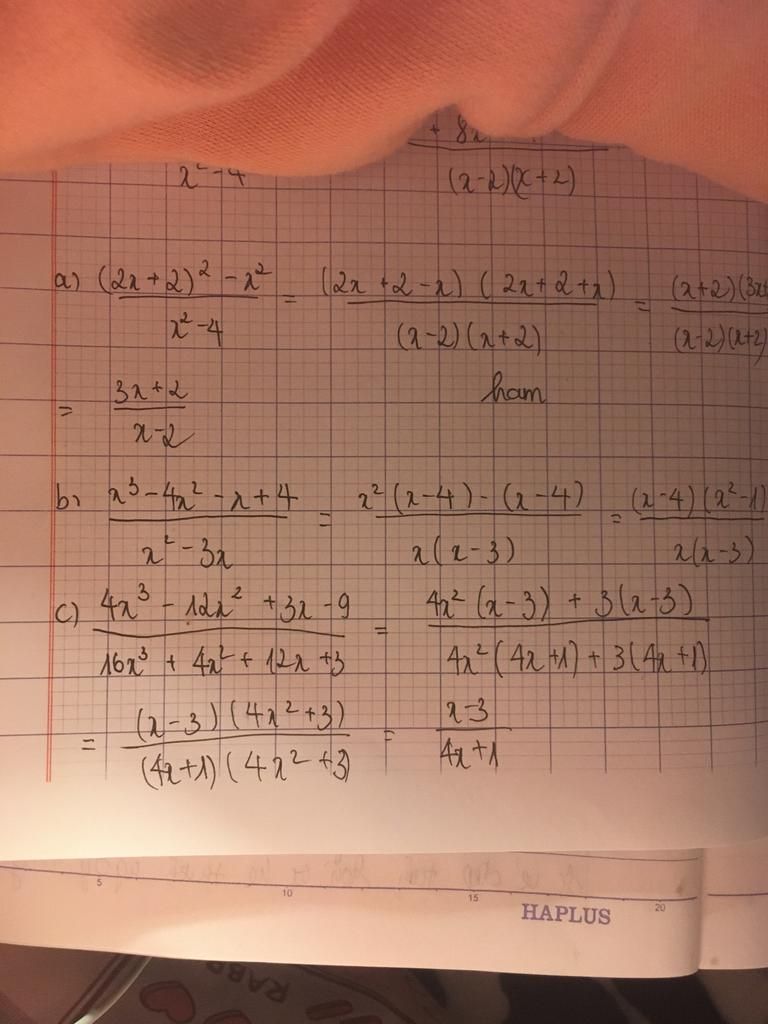 + 8x
x² - 4
(x-2)(x+2)
a) (2x+2)² - x² / x² - 4 = (2x+2-x)(2x+2+x) / (x-2)(x+2) = (x+2)(3x+ / (x-2)(x+2)
= 3x+2 / x-2
ham
b) x³ - 4x² - x + 4 / x² - 3x = x²(x-4) - (x-4) / x(x-3) = (x-4)(x²-1) / x(x-3)
c) 4x³ - 12x² + 3x - 9 / 16x³ + 4x² + 12x + 3 = 4x²(x-3) + 3(x-3) / 4x²(4x+1) + 3(4x+1)
= (x-3)(4x²+3) / (4x+1)(4x²+3) = x-3 / 4x+1
5 10 15 20
HAPLUS